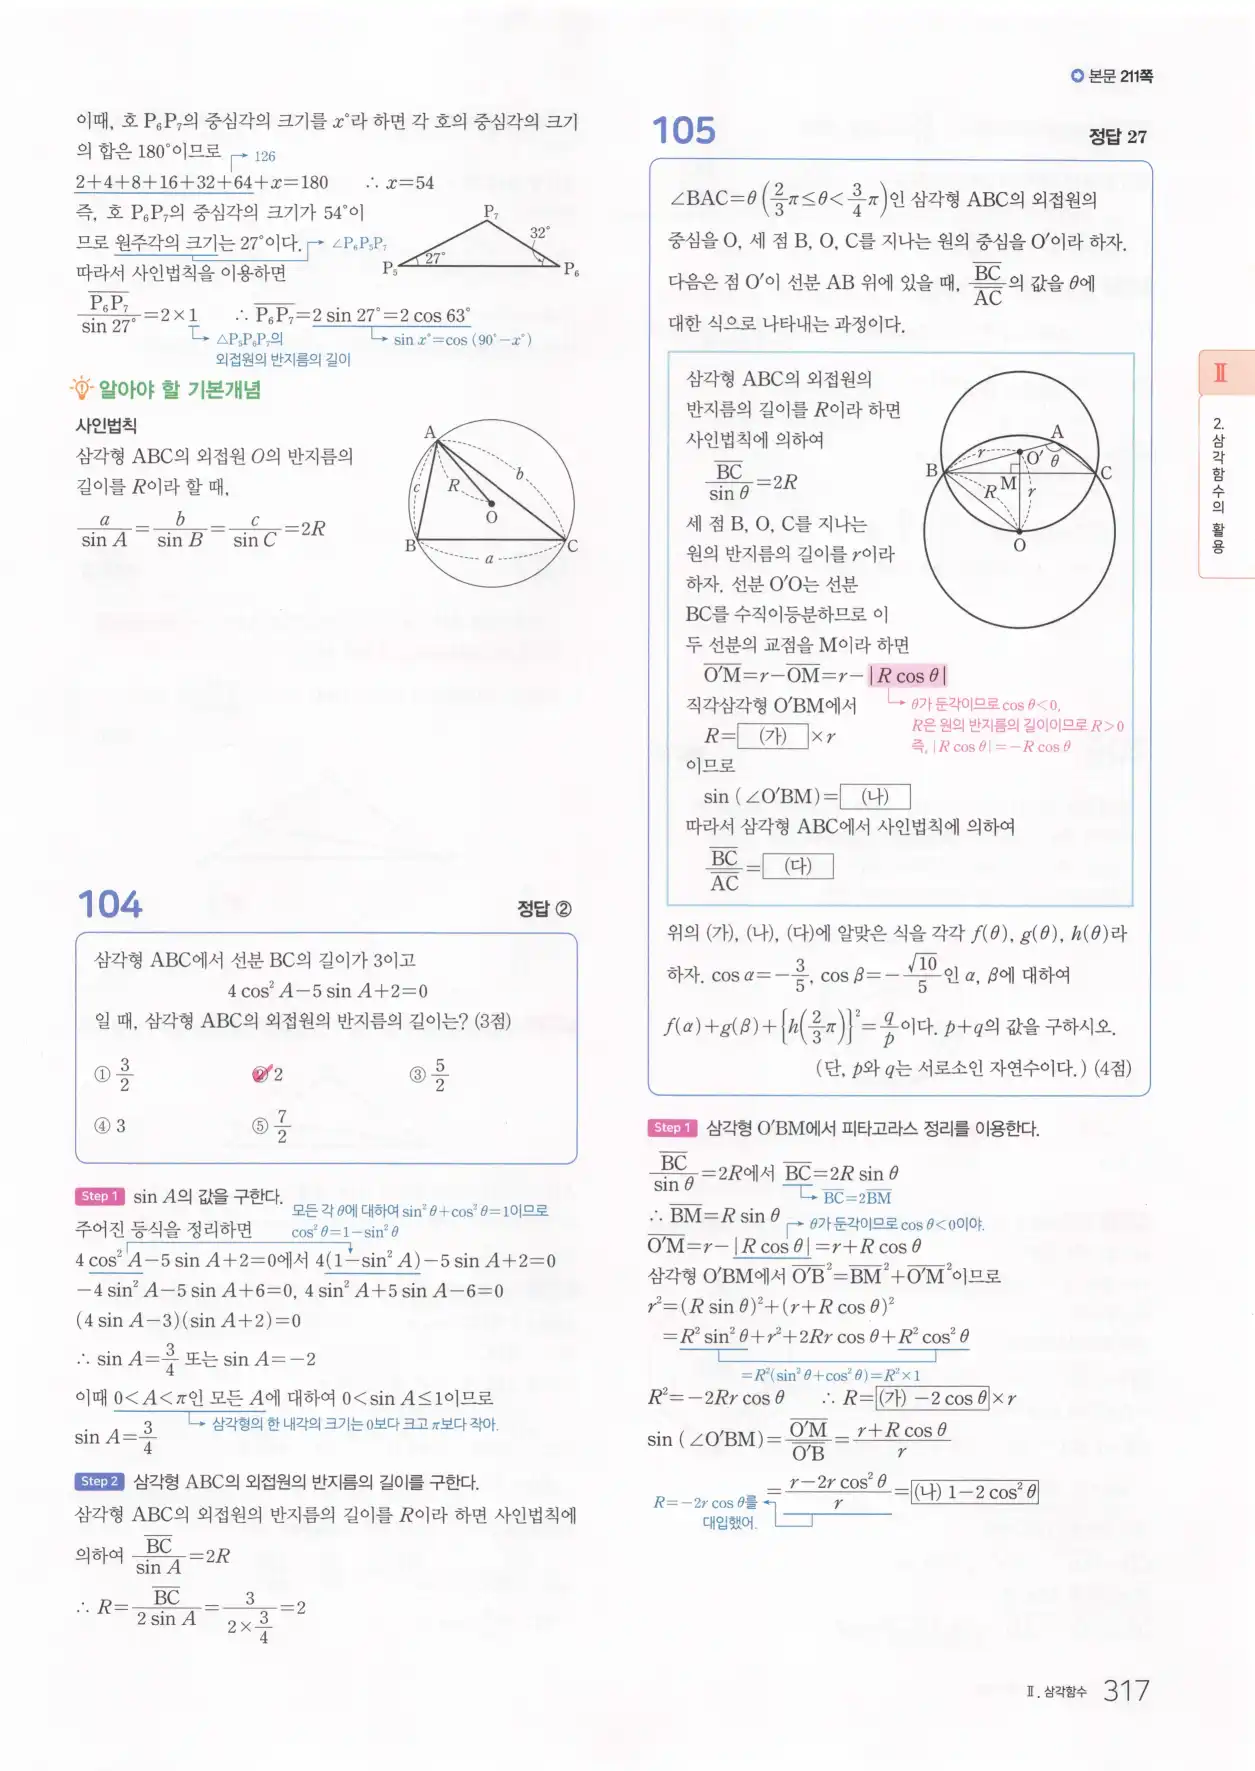 본문 211쪽
이때, 호 P₆P₇의 중심각의 크기를 x°라 하면 각 호의 중심각의 크기
의 합은 180°이므로 126
2+4+8+16+32+64+x=180 ∴ x=54
즉, 호 P₆P₇의 중심각의 크기가 54°이
므로 원주각의 크기는 27°이다. ∠P₆P₅P₇
따라서 사인법칙을 이용하면
P₇
32°
27°
P₅
P₆
P₆P₇/sin 27°=2×1 ∴ P₆P₇=2 sin 27°=2 cos 63°
△P₅P₆P₇의 sin x°=cos (90°−x°)
외접원의 반지름의 길이
알아야 할 기본개념
사인법칙
삼각형 ABC의 외접원 O의 반지름의
길이를 R이라 할 때,
a/sin A=b/sin B=c/sin C=2R
A
b
c
R
O
B
a
C
104
정답 ②
삼각형 ABC에서 선분 BC의 길이가 3이고
4 cos² A−5 sin A+2=0
일 때, 삼각형 ABC의 외접원의 반지름의 길이는? (3점)
① 3/2 ② 2 ③ 5/2
④ 3 ⑤ 7/2
Step 1 sin A의 값을 구한다.
모든 각 θ에 대하여 sin² θ+cos² θ=1이므로
주어진 등식을 정리하면 cos² θ=1−sin² θ
4 cos² A−5 sin A+2=0에서 4(1−sin² A)−5 sin A+2=0
−4 sin² A−5 sin A+6=0, 4 sin² A+5 sin A−6=0
(4 sin A−3)(sin A+2)=0
∴ sin A=3/4 또는 sin A=−2
이때 0<A<π인 모든 A에 대하여 0<sin A≤1이므로
삼각형의 한 내각의 크기는 0보다 크고 π보다 작아.
sin A=3/4
Step 2 삼각형 ABC의 외접원의 반지름의 길이를 구한다.
삼각형 ABC의 외접원의 반지름의 길이를 R이라 하면 사인법칙에
의하여 BC/sin A=2R
∴ R=BC/2 sin A=3/(2×3/4)=2
105
정답 27
∠BAC=θ(2/3π≤θ<3/4π)인 삼각형 ABC의 외접원의
중심을 O, 세 점 B, O, C를 지나는 원의 중심을 O′이라 하자.
다음은 점 O′이 선분 AB 위에 있을 때, BC/AC의 값을 θ에
대한 식으로 나타내는 과정이다.
삼각형 ABC의 외접원의
반지름의 길이를 R이라 하면
사인법칙에 의하여
BC/sin θ=2R
세 점 B, O, C를 지나는
원의 반지름의 길이를 r이라
하자. 선분 O′O는 선분
BC를 수직이등분하므로 이
두 선분의 교점을 M이라 하면
A
r
O′
θ
B
M
C
R
r
O
O′M=r−OM=r−|R cos θ|
직각삼각형 O′BM에서
θ가 둔각이므로 cos θ<0,
R은 원의 반지름의 길이이므로 R>0
즉, |R cos θ|=−R cos θ
R=(가)×r
이므로
sin (∠O′BM)=(나)
따라서 삼각형 ABC에서 사인법칙에 의하여
BC/AC=(다)
위의 (가), (나), (다)에 알맞은 식을 각각 f(θ), g(θ), h(θ)라
하자. cos α=−3/5, cos β=−√10/5인 α, β에 대하여
f(α)+g(β)+{h(2/3π)}²=q/p이다. p+q의 값을 구하시오.
(단, p와 q는 서로소인 자연수이다.) (4점)
Step 1 삼각형 O′BM에서 피타고라스 정리를 이용한다.
BC/sin θ=2R에서 BC=2R sin θ
BC=2BM
∴ BM=R sin θ
θ가 둔각이므로 cos θ<0이야.
O′M=r−|R cos θ|=r+R cos θ
삼각형 O′BM에서 O′B²=BM²+O′M²이므로
r²=(R sin θ)²+(r+R cos θ)²
=R² sin² θ+r²+2Rr cos θ+R² cos² θ
=R²(sin² θ+cos² θ)=R²×1
R²=−2Rr cos θ ∴ R=(가) −2 cos θ×r
sin (∠O′BM)=O′M/O′B=(r+R cos θ)/r
=(r−2r cos² θ)/r=(나) 1−2 cos² θ
R=−2r cos θ를
대입했어.
Ⅱ
2. 삼각함수의 활용
Ⅱ. 삼각함수 317